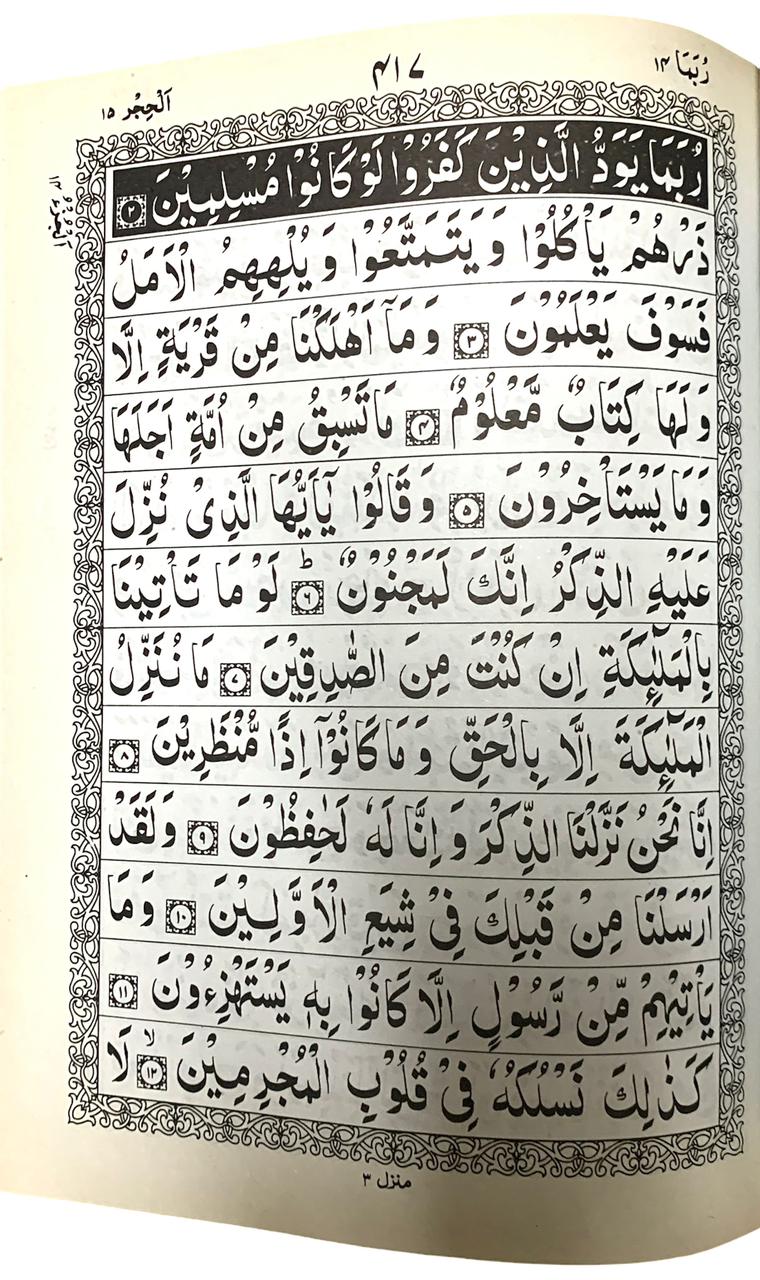 رُبَمَا ۱۴
۴۱۷
اَلْحِجْر ۱۵
اَلْجُزْءُ ۱۴
رُبَمَا يَوَدُّ الَّذِيْنَ كَفَرُوْا لَوْ كَانُوْا مُسْلِمِيْنَ ۲
ذَرْهُمْ يَاْكُلُوْا وَ يَتَمَتَّعُوْا وَ يُلْهِهِمُ الْاَمَلُ
فَسَوْفَ يَعْلَمُوْنَ ۳ وَ مَاۤ اَهْلَكْنَا مِنْ قَرْيَةٍ اِلَّا
وَ لَهَا كِتَابٌ مَّعْلُوْمٌ ۴ مَا تَسْبِقُ مِنْ اُمَّةٍ اَجَلَهَا
وَ مَا يَسْتَاْخِرُوْنَ ۵ وَ قَالُوْا يٰۤاَيُّهَا الَّذِىْ نُزِّلَ
عَلَيْهِ الذِّكْرُ اِنَّكَ لَمَجْنُوْنٌ ؕ ۶ لَوْ مَا تَاْتِيْنَا
بِالْمَلٰٓئِكَةِ اِنْ كُنْتَ مِنَ الصّٰدِقِيْنَ ۷ مَا نُنَزِّلُ
الْمَلٰٓئِكَةَ اِلَّا بِالْحَقِّ وَ مَا كَانُوْۤا اِذًا مُّنْظَرِيْنَ ۸
اِنَّا نَحْنُ نَزَّلْنَا الذِّكْرَ وَ اِنَّا لَهٗ لَحٰفِظُوْنَ ۹ وَ لَقَدْ
اَرْسَلْنَا مِنْ قَبْلِكَ فِىْ شِيَعِ الْاَوَّلِيْنَ ۱۰ وَ مَا
يَاْتِيْهِمْ مِّنْ رَّسُوْلٍ اِلَّا كَانُوْا بِهٖ يَسْتَهْزِءُوْنَ ۱۱
كَذٰلِكَ نَسْلُكُهٗ فِىْ قُلُوْبِ الْمُجْرِمِيْنَ ۙ ۱۲ لَا
منزل ۳